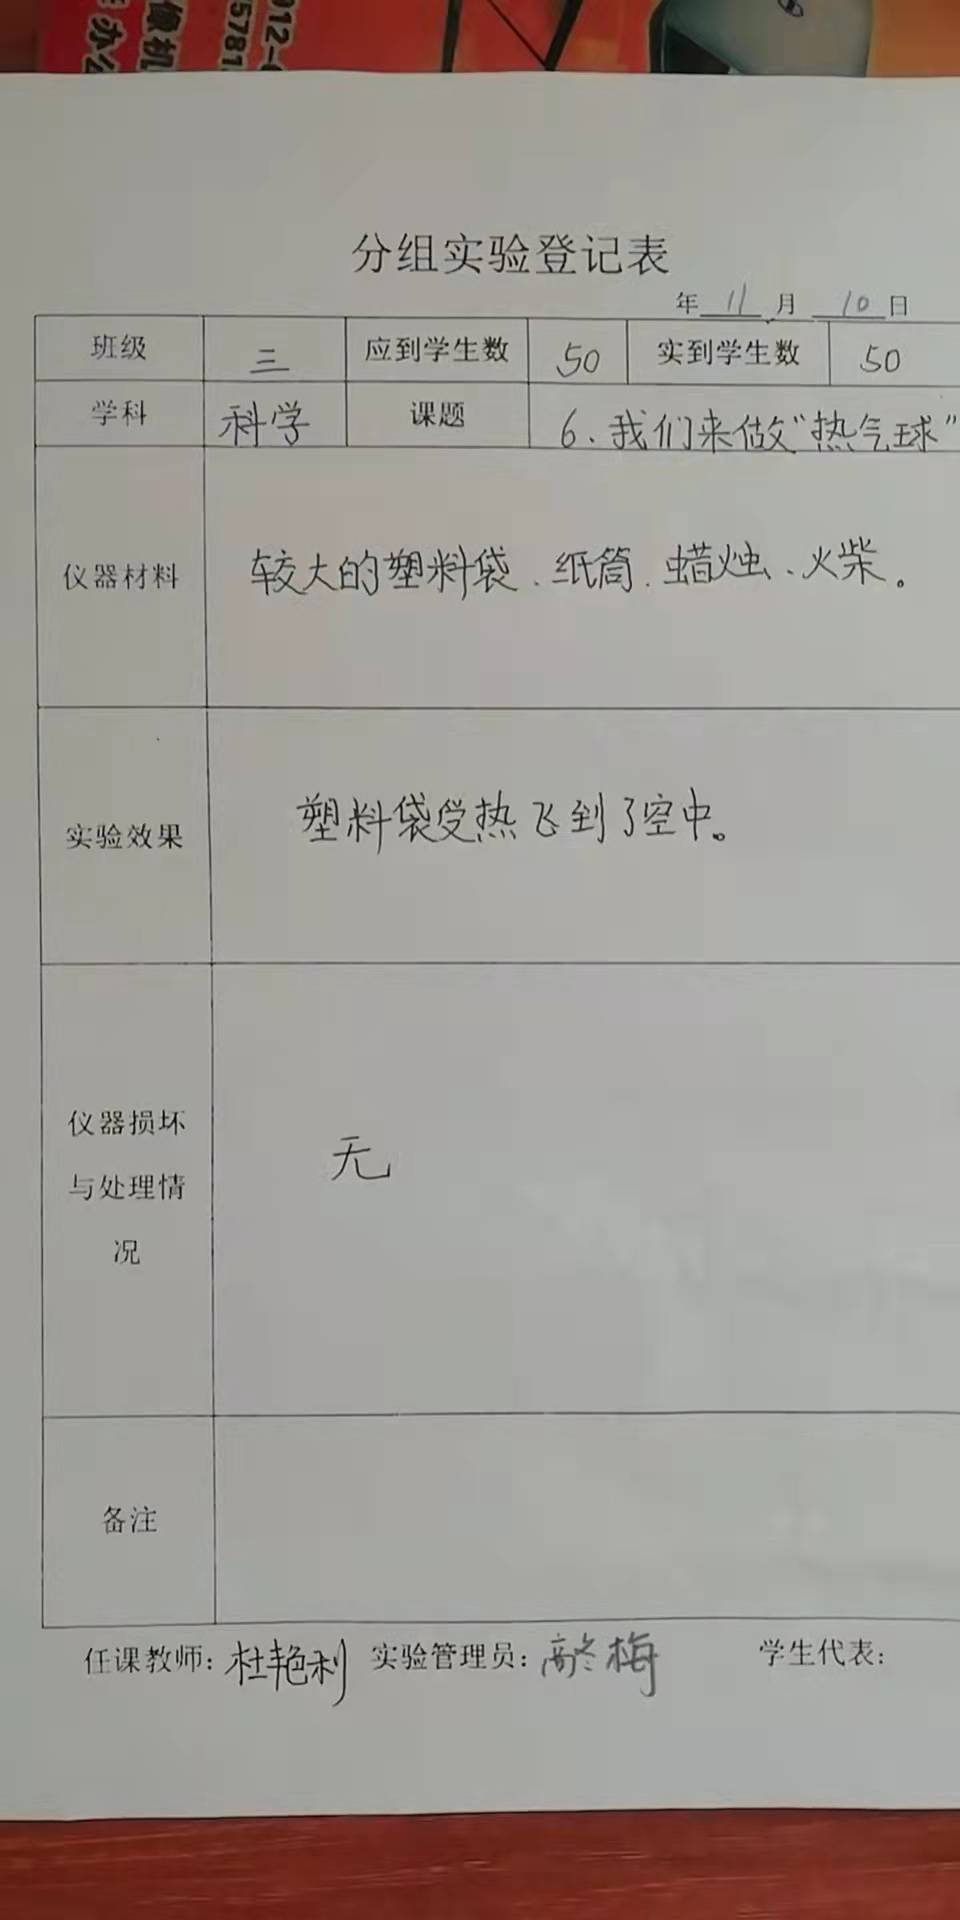 012-6
5781
像机
办公
分组实验登记表
年 11 月 10 日
班级 三 应到学生数 50 实到学生数 50
学科 科学 课题 6、我们来做“热气球”
仪器材料 较大的塑料袋、纸筒、蜡烛、火柴。
实验效果 塑料袋受热飞到了空中。
仪器损坏
与处理情
况
无
备注
任课教师：杜艳利 实验管理员：高冬梅 学生代表：